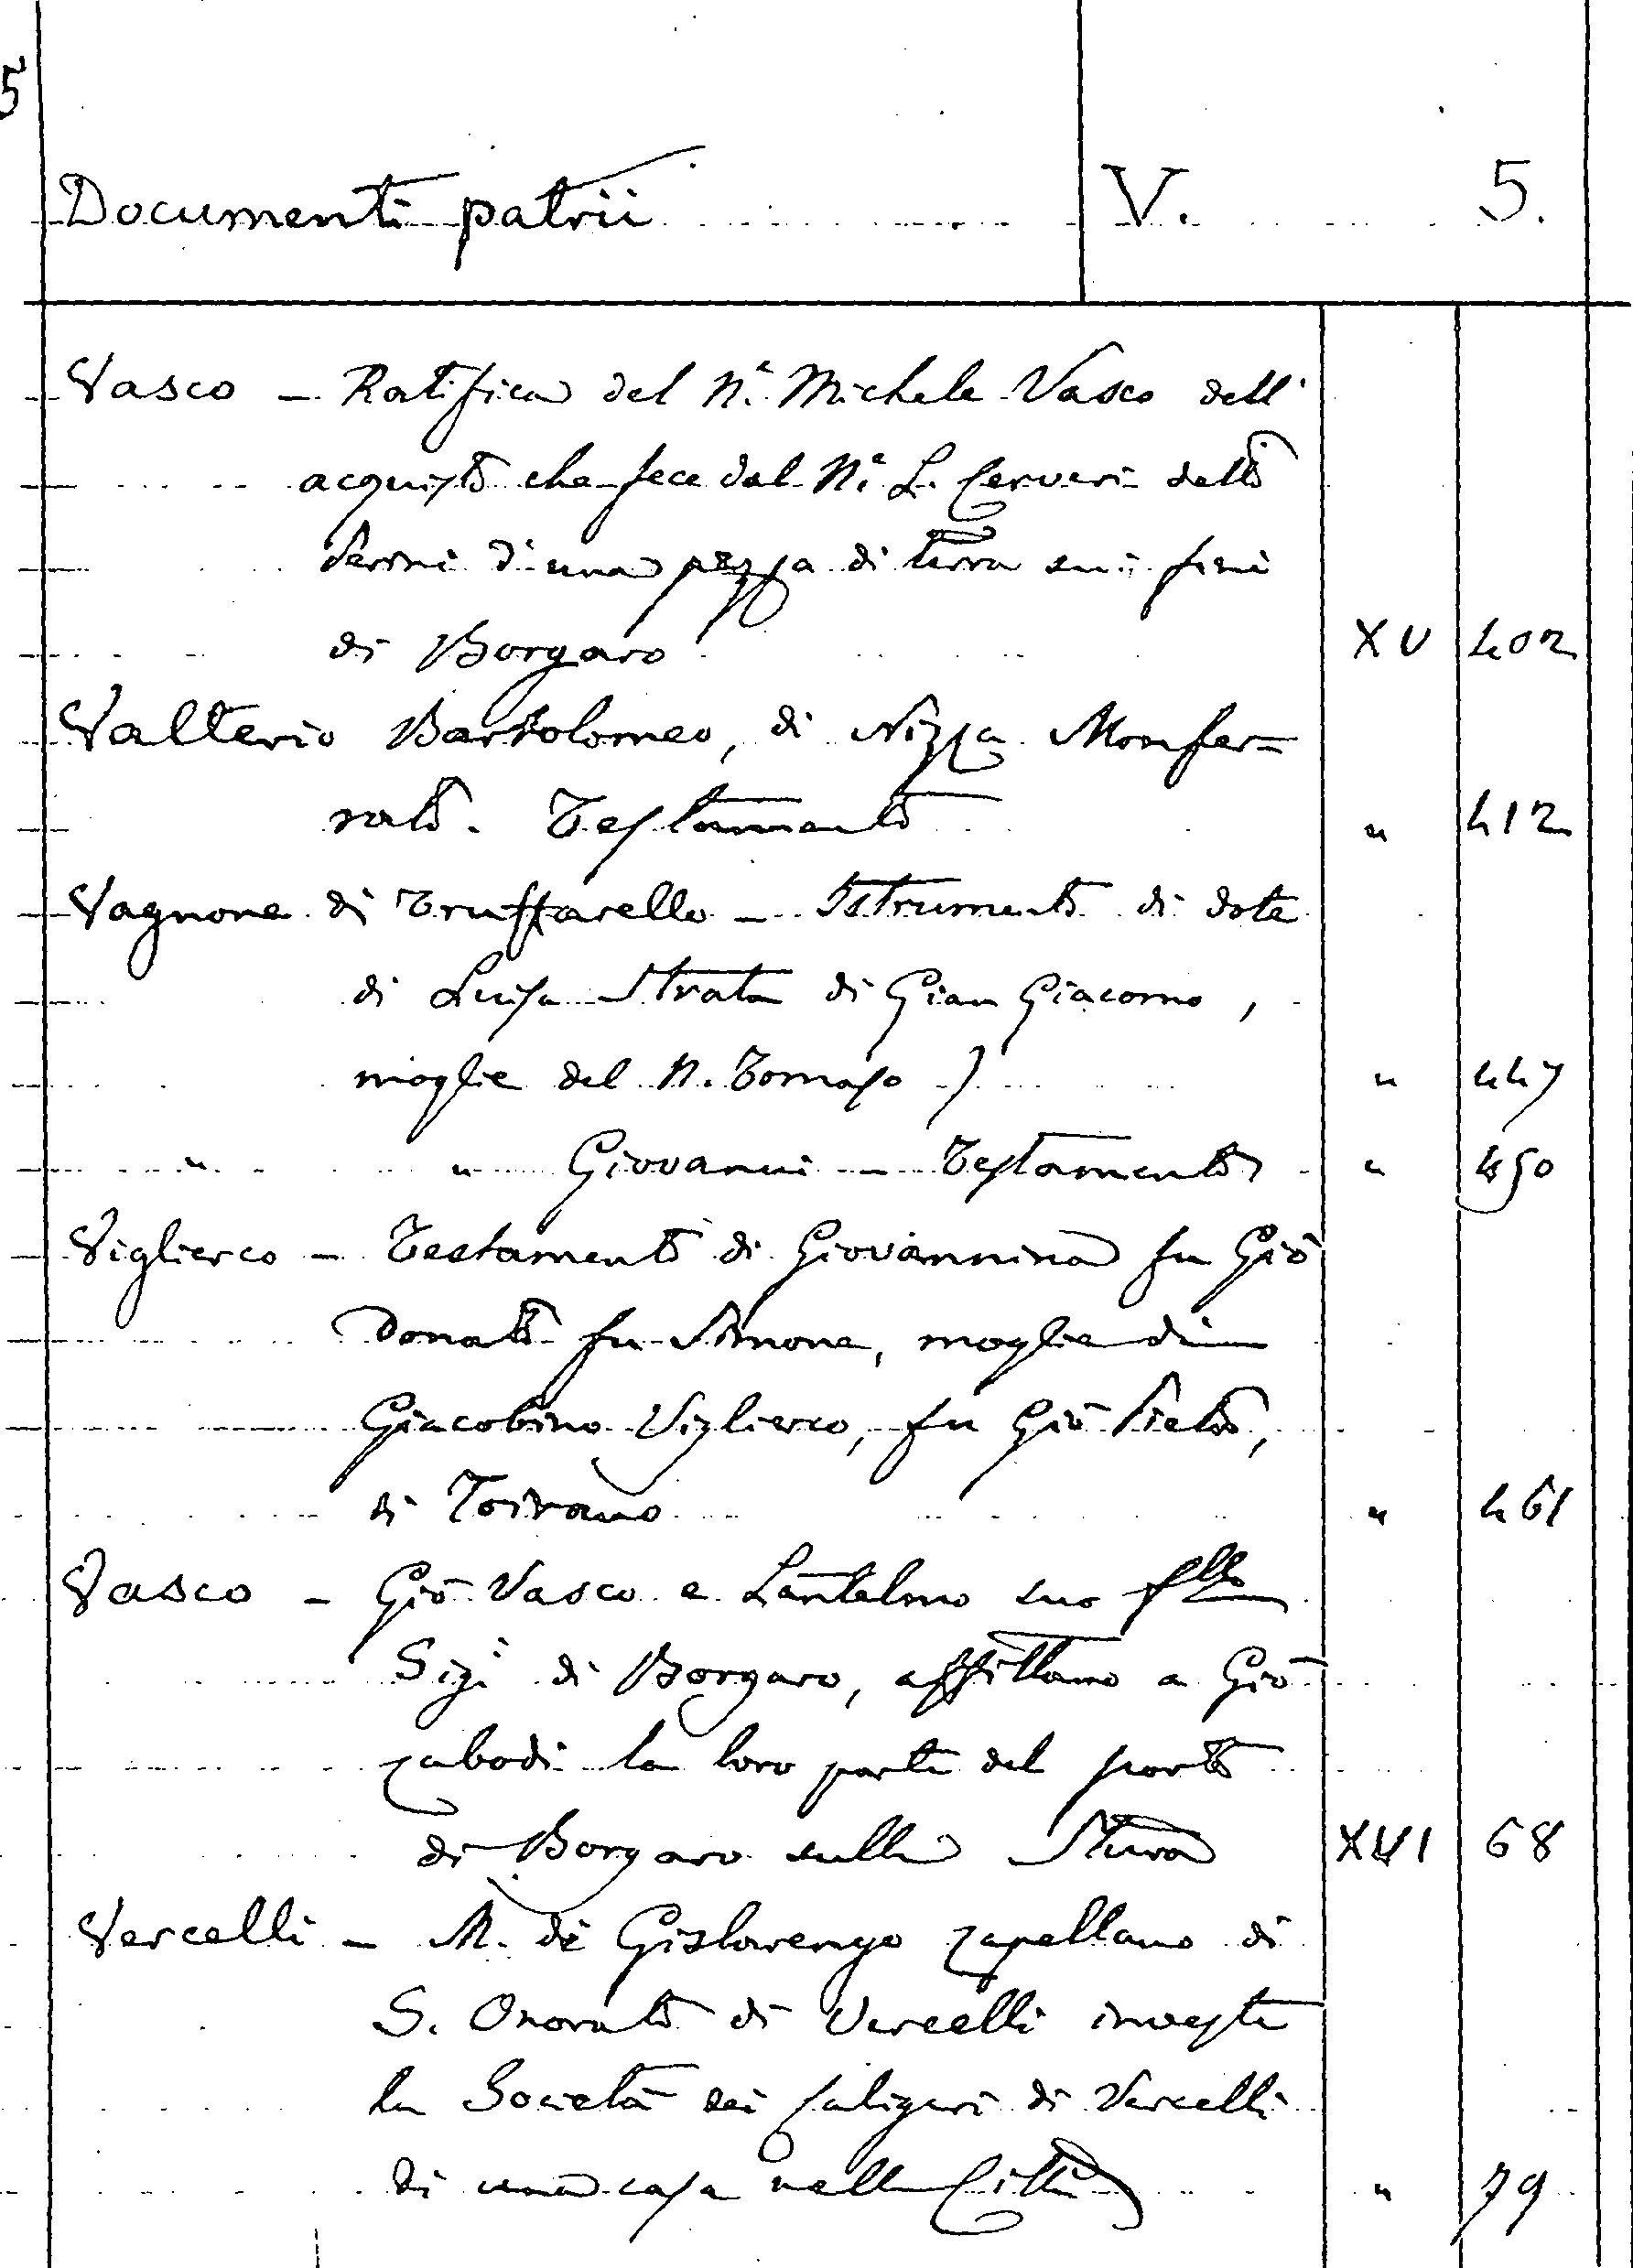 5
Documenti patrii V. 5.
Vasco – Ratifica del N.e Michele Vasco dell'
acquisto che fece dal N.e L. Cerveri detto
d'una pezza di terra sui fini
di Borgaro XV 402
Valterio Bartolomeo, di Nizza Monfer=
rato. Testamento " 412
Vagnone di Truffarello – Istrumento di dote
di Luisa Strata di Gian Giacomo,
moglie del N. Tomaso ) " 447
" " Giovanni – Testamento " 450
Viglierco – Testamento di Giovannina fu Giō
Donato fu Simone, moglie di
Giacobino Viglierco, fu Giō Pietro,
di Toirano " 461
Vasco – Giō Vasco e Lantelmo suo fllo
Sigi di Borgaro, affittano a Giō
la loro parte del porto
di Borgaro sulla Stura XVI 68
Vercelli – M. de Gislarengo capellano di
S. Onorato di Vercelli investe
la Società dei Caligari di Vercelli
di una casa nella Città " 79